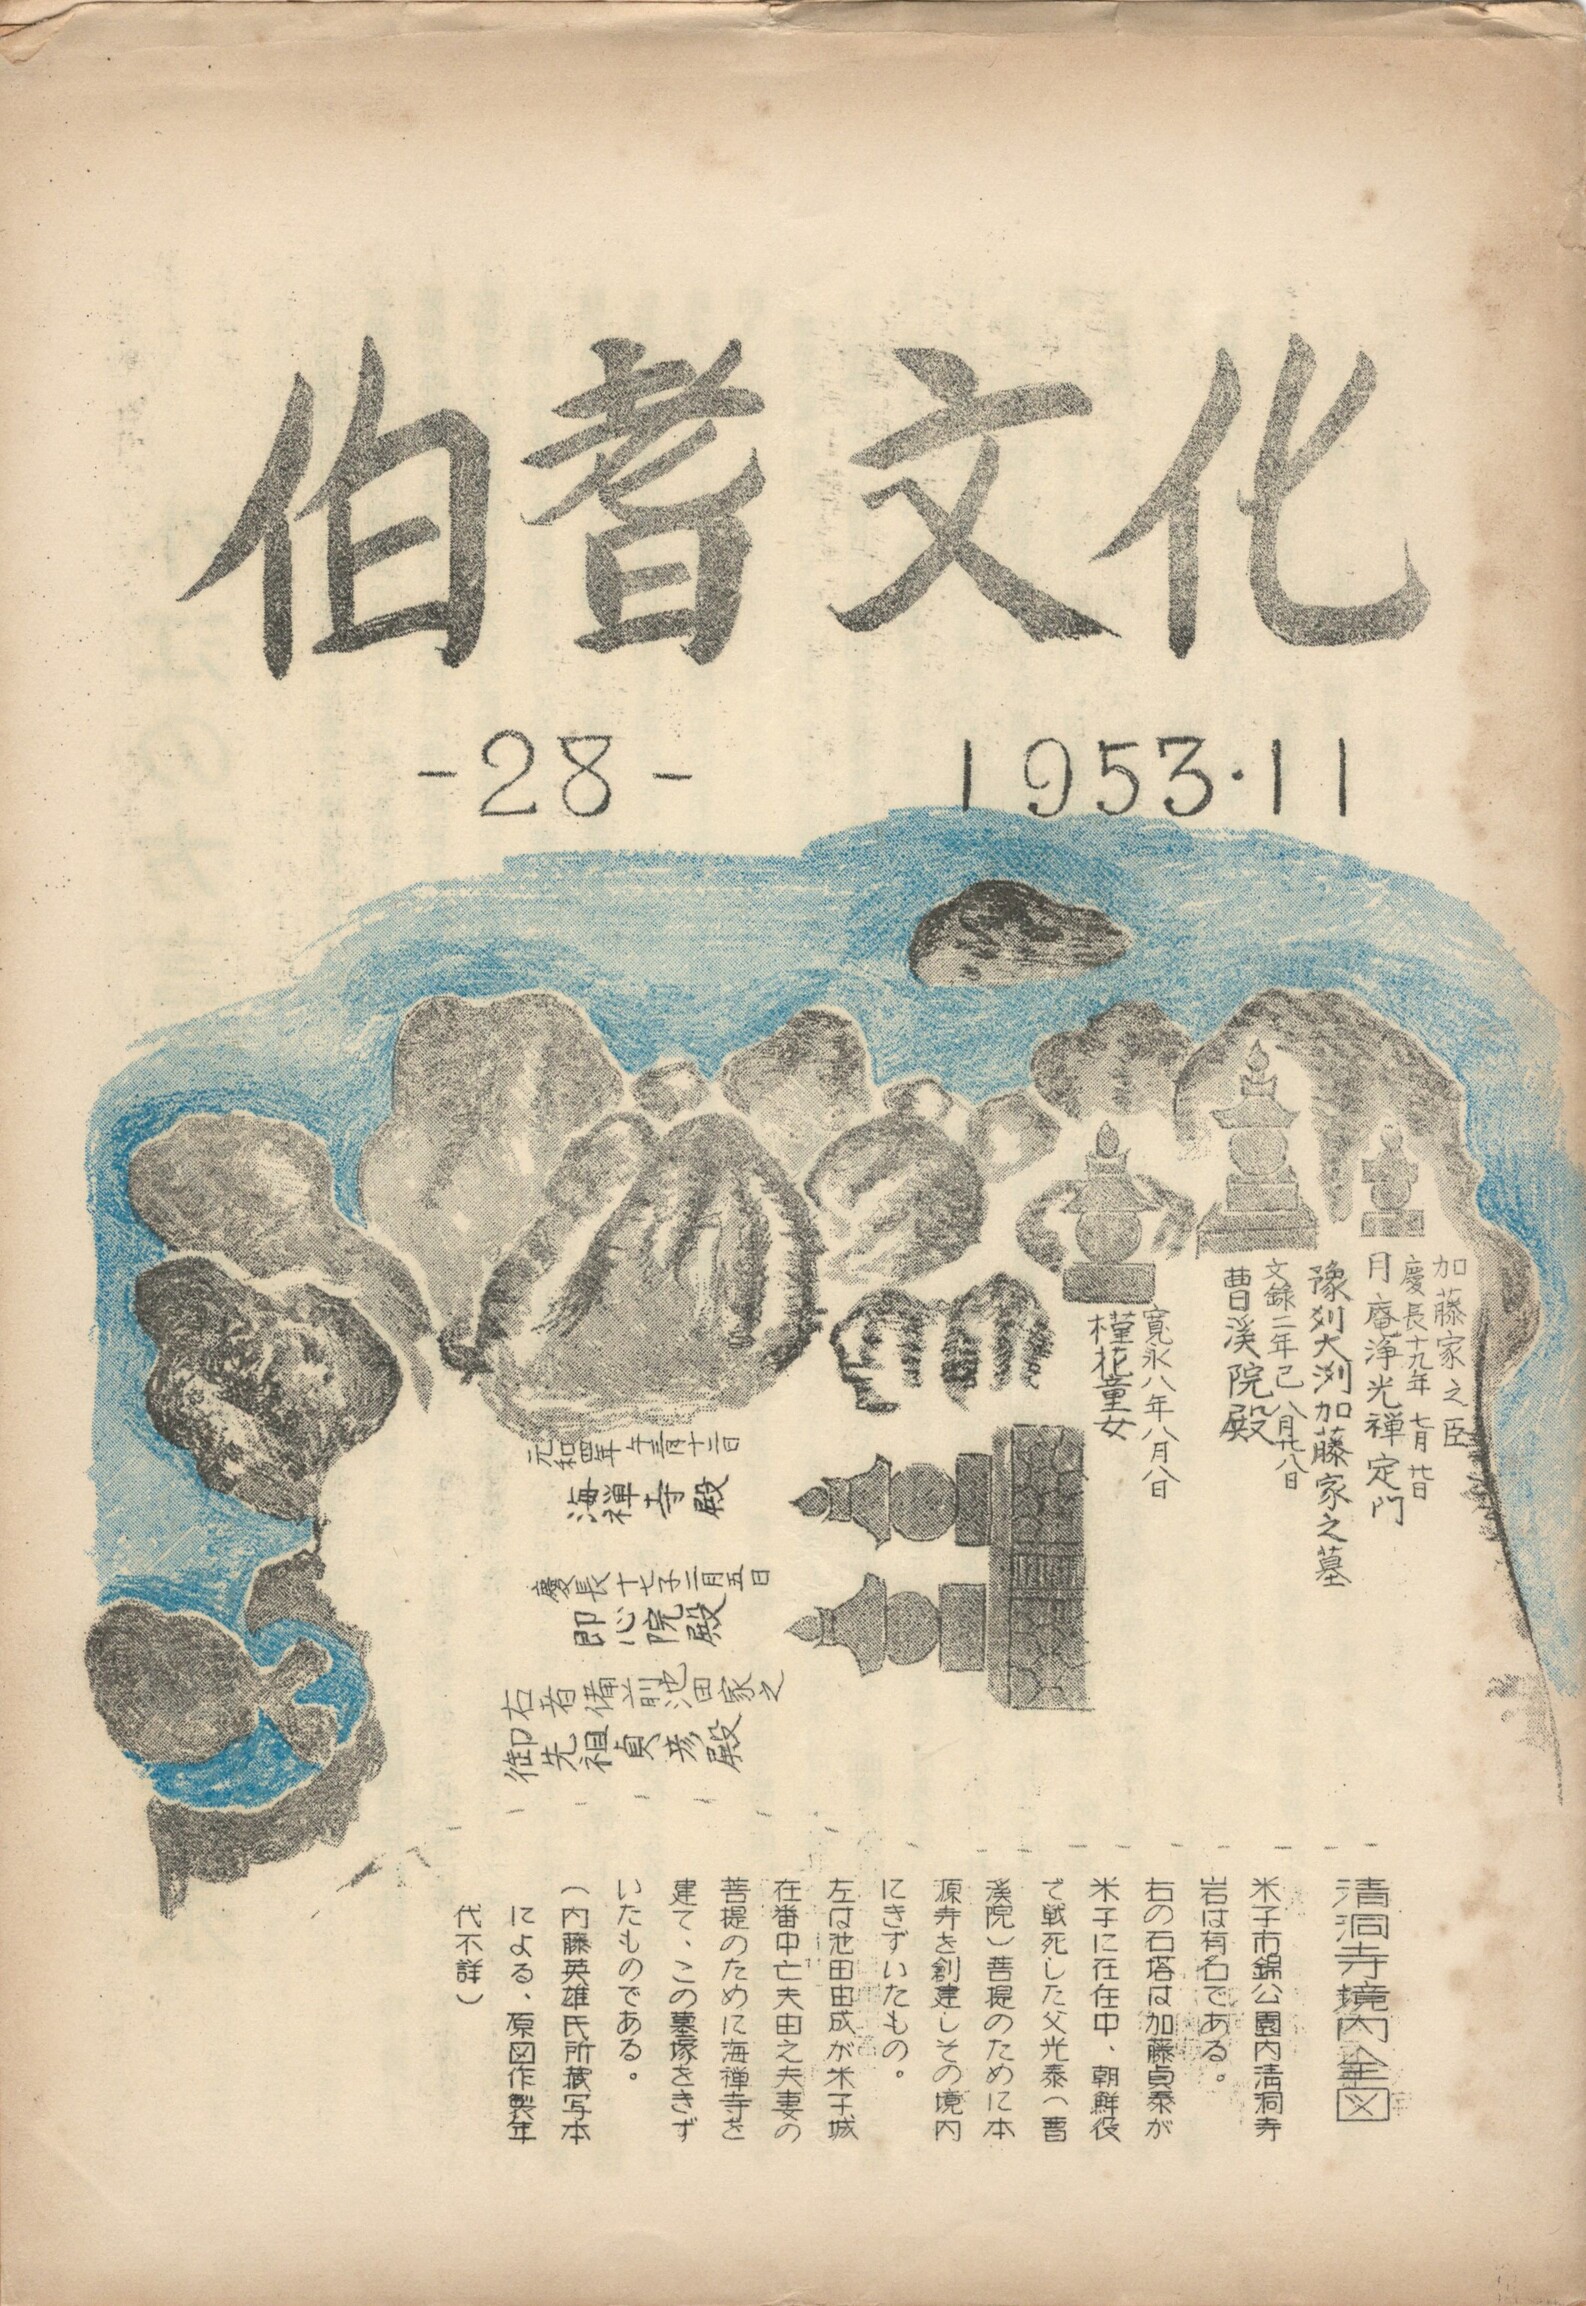 伯耆文化
-28-
1953・11
加藤家之臣
慶長十九年 七月廿日
月庵淨光禅定門
豫刕大洲加藤家之墓
文録二年巳八月廿八日
曹溪院殿
寛永八年八月八日
槿花童女
元和四年午三月十二日
海禅寺殿
慶長十七子二月五日
即心院殿
右者備前池田家之
御先祖貞彦殿
清洞寺境内全図
米子市錦公園内清洞寺
岩は有名である。
右の石塔は加藤貞泰が
米子に在任中、朝鮮役
で戦死した父光泰(曹
溪院)菩提のために本
源寺を創建しその境内
にきずいたもの。
左は池田由成が米子城
在番中亡夫由之夫妻の
菩提のために海禅寺を
建て、この墓塚をきず
いたものである。
(内藤英雄氏所蔵写本
による、原図作製年
代不詳)